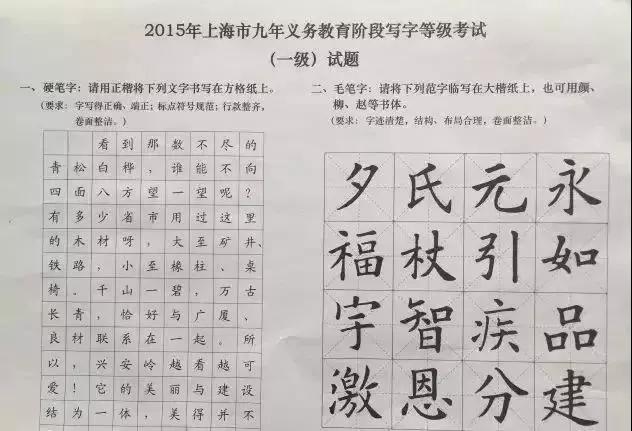 2015年上海市九年义务教育阶段写字等级考试
（一级）试题
一、硬笔字：请用正楷将下列文字书写在方格纸上。
（要求：字写得正确、端正；标点符号规范；行款整齐，
卷面整洁。）
看到那数不尽的
青松白桦，谁能不向
四面八方望一望呢？
有多少省市用过这里
的木材呀，大至矿井、
铁路，小至椽柱、桌
椅。千山一碧，万古
长青，恰好与广厦、
良材联系在一起。所
以，兴安岭越看越可
爱！它的美丽与建设
结为一体，美得并不
二、毛笔字：请将下列范字临写在大楷纸上，也可用颜、
柳、赵等书体。
（要求：字迹清楚，结构、布局合理，卷面整洁。）
夕氏元永
福杖引如
宇智疾品
激恩分建